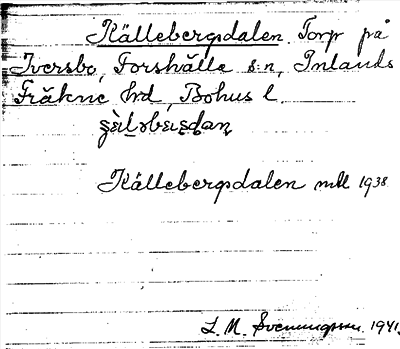 Källebergsdalen. Torp på
Iversbo, Forshälla s:n, Inlands
Fräkne hd, Bohus l.
Källebergsdalen mtl 1938
L. M. Svenungsson 1941.